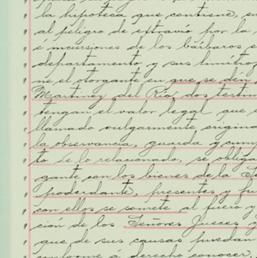 la hipoteca que contiene, en
al peligro de extravío por la
e incursiones de los bárbaros e
departamento y sus limítro
me el otorgante en que se den
Martinez del Río, dos testi
tengan el valor legal que
llamado vulgarmente origina
la observancia, guarda y cump
to de lo relacionado, se obliga
gante con los bienes de la
poderdante, presentes y fu
con ellos se somete al fuero y
ción de los Señores Jueces y
que de sus causas puedan
conforme a derecho conocer,